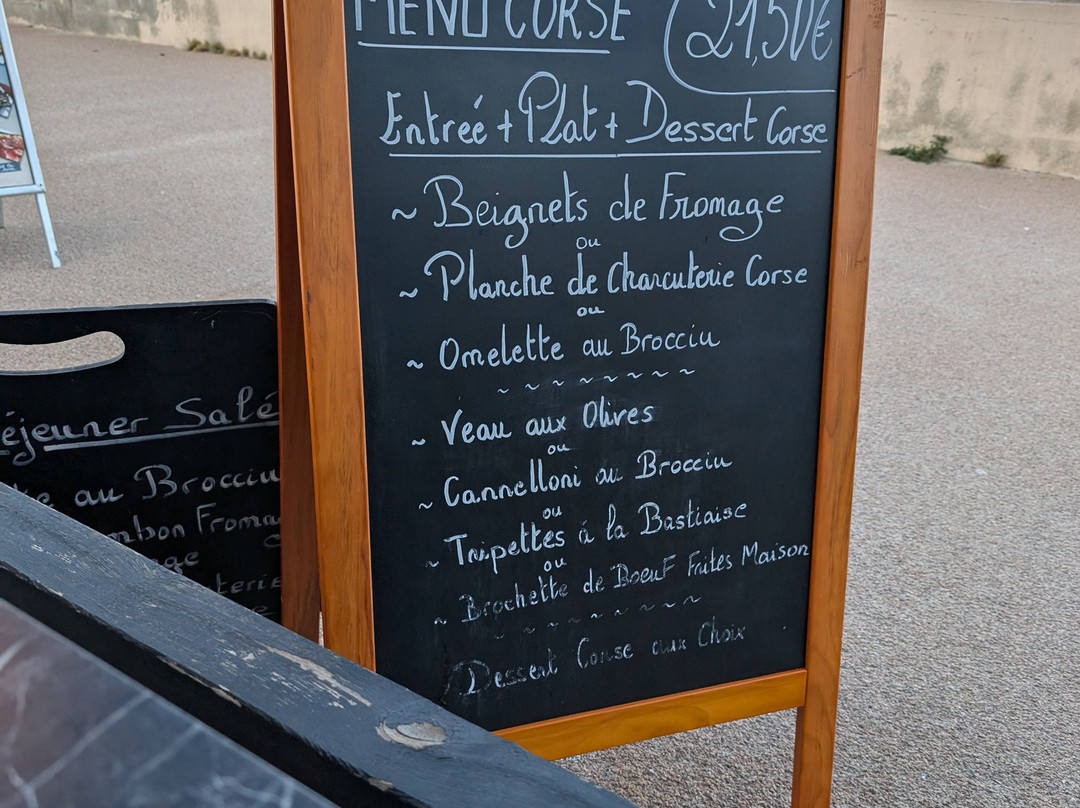 MENU CORSE 21,50€
Entrée + Plat + Dessert Corse
~ Beignets de Fromage
ou
~ Planche de Charcuterie Corse
ou
~ Omelette au Brocciu
~ ~ ~ ~ ~ ~ ~ ~
~ Veau aux Olives
ou
~ Cannelloni au Brocciu
ou
~ Tripettes à la Bastiaise
ou
~ Brochette de Boeuf Frites Maison
~ ~ ~ ~ ~ ~ ~ ~
Dessert Corse aux Choix
éjeuner Salé
au Brocciu
mbon Froma
ge
terie